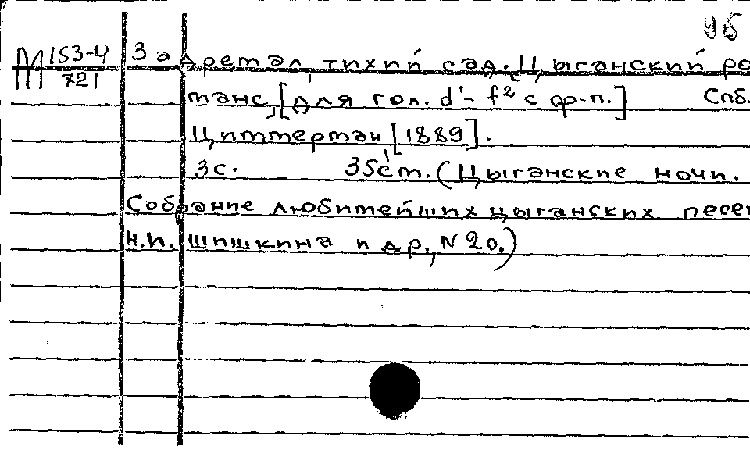 96
М 153-4 / 721
Задремал тихий сад. Цыганский ро
манс, [для гол. d¹- f² с ф-п.] Спб.
Циммерман [1889].
3с. 35ст. (Цыганские ночи.
Собрание любитейших цыганских песен
Н.И. Шишкина и др., N 20.)